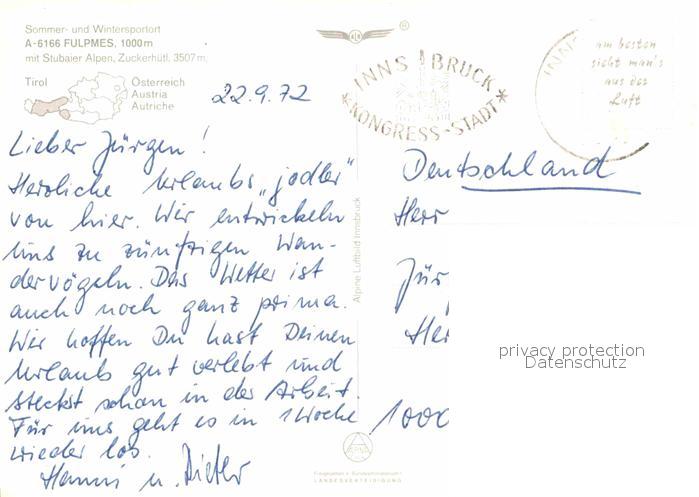 Sommer- und Wintersportort
A-6166 FULPMES, 1000m
mit Stubaier Alpen, Zuckerhütl. 3507m.
Tirol
Österreich
Austria
Autriche
22.9.72
Lieber Jürgen!
Herzliche Urlaubs „jodler"
von hier. Wir entwickeln
uns zu zünftigen Wan-
dervögeln. Das Wetter ist
auch noch ganz prima.
Wir hoffen Du hast Deinen
Urlaub gut verlebt und
steckst schon in der Arbeit.
Für uns geht es in 1 Woche
wieder los.
Hanni u. Dieter
Alpine Luftbild Innsbruck
INNSBRUCK
*KONGRESS-STADT*
INN
am besten
sieht man's
aus der
Luft
Deutschland
Herr
Jür
Her
privacy protection
Datenschutz
1000
LANDESVERTEIDIGUNG